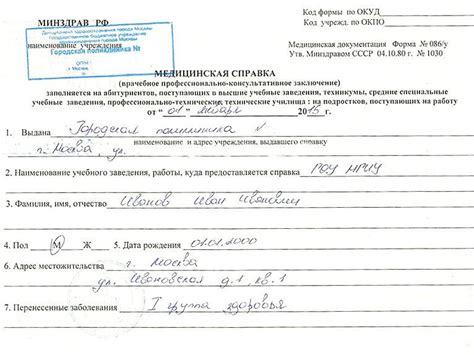 МИНЗДРАВ РФ
Код формы по ОКУД
Код учрежд. по ОКПО
Департамент здравоохранения города Москвы
Государственное бюджетное учреждение
здравоохранения города Москвы
Городская поликлиника №
г. Москва
наименование учреждения
Медицинская документация Форма № 086/у
Утв. Минздравом СССР 04.10.80 г. № 1030
МЕДИЦИНСКАЯ СПРАВКА
(врачебное профессионально-консультативное заключение)
заполняется на абитуриентов, поступающих в высшие учебные заведения, техникумы, средние специальные
учебные заведения, профессионально-технические, технические училища : на подростков, поступающих на работу
от " 01 " января 2015 г.
1. Выдана Городская поликлиника №
наименование и адрес учреждения, выдавшего справку
г. Москва ул.
2. Наименование учебного заведения, работы, куда предоставляется справка РОУ МРИУ
3. Фамилия, имя, отчество Иванов Иван Иванович
4. Пол М Ж 5. Дата рождения 01.01.2000
6. Адрес местожительства г. Москва
ул. Ивановская д.1, кв.1
7. Перенесенные заболевания I группа здоровья